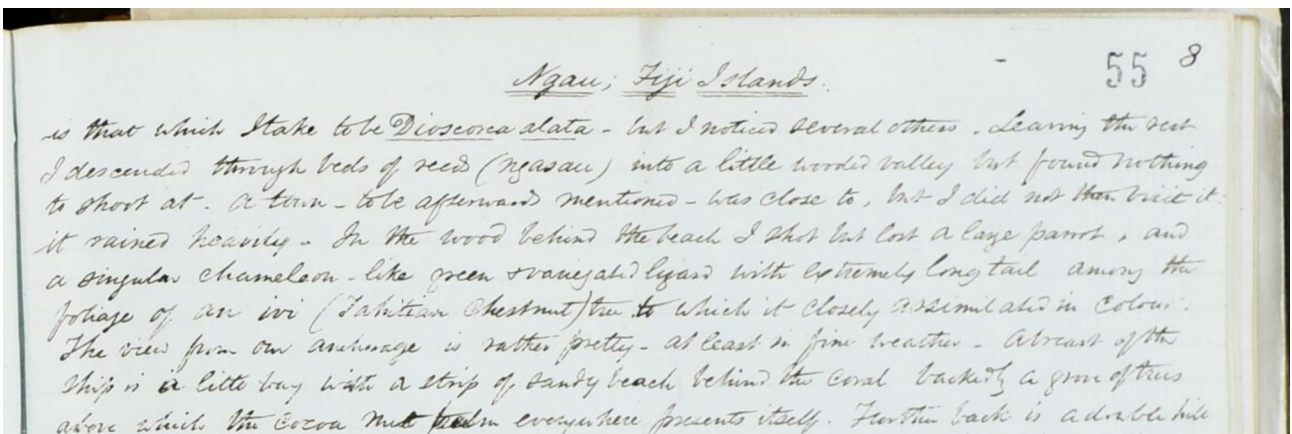 55 8
Ngau; Fiji Islands.
is that which I take to be Dioscorea alata - but I noticed several others. Leaving the rest
I descended through beds of reeds (ngasau) into a little wooded valley but found nothing
to shoot at. A town - to be afterwards mentioned - was close to, but I did not then visit it:
it rained heavily - In the wood behind the beach I shot but lost a large parrot, and
a singular chameleon-like green & variegated lizard with extremely long tail among the
foliage of an ivi (Tahitian Chestnut) tree to which it closely assimilated in colour.
The view from our anchorage is rather pretty - at least in fine weather - Abreast of the
ship is a little bay with a strip of sandy beach behind the coral backed by a grove of trees
above which the Cocoa nut palm everywhere presents itself. Further back is a double hill